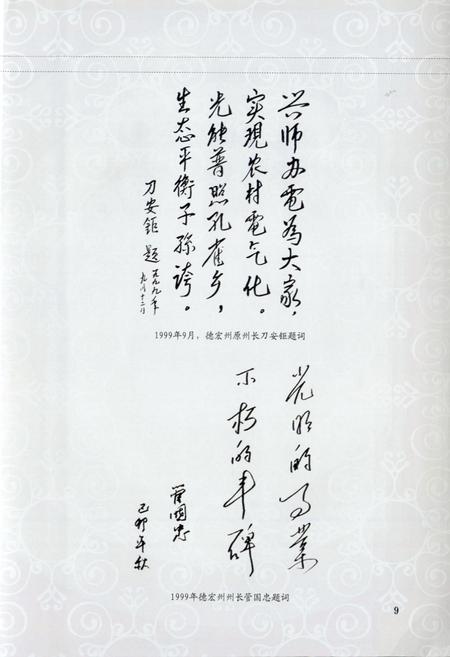 兴师办電为大家，
实现农村電气化。
光能普照孔雀乡，
生态平衡子孙誇。
刀安钜 题 一九九九年
九月十二日
1999年9月，德宏州原州长刀安钜题词
光明的事業
不朽的丰碑
管國忠
己卯年秋
1999年德宏州州长管国忠题词
9